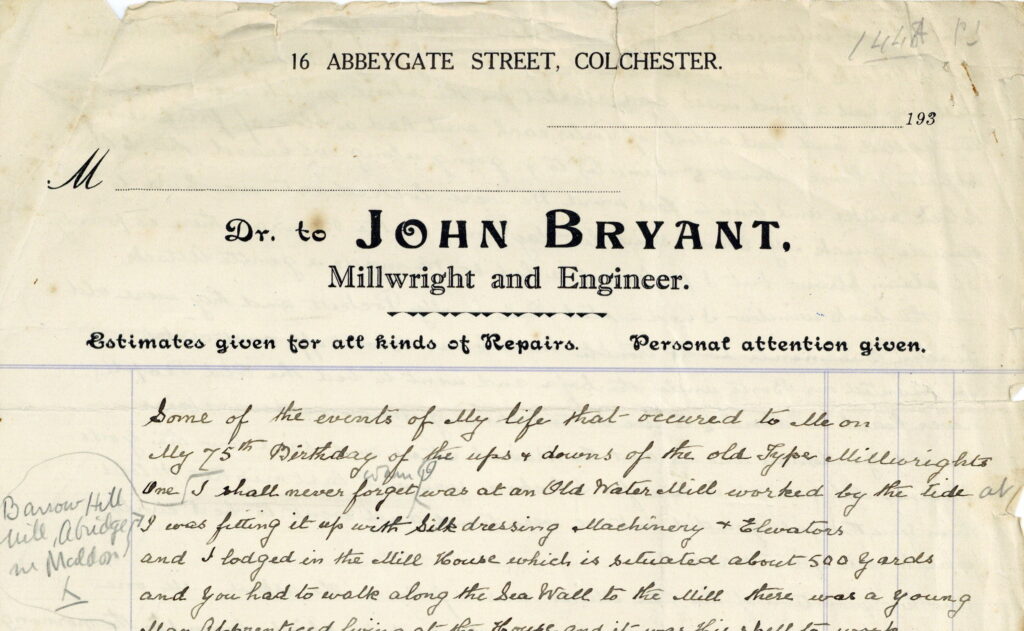 144A
16 ABBEYGATE STREET, COLCHESTER.
193
M
Dr. to JOHN BRYANT.
Millwright and Engineer.
Estimates given for all kinds of Repairs. Personal attention given.
Some of the events of My life that occured to Me on
My 75th Birthday of the ups & downs of the old Type Millwrights
One I shall never forget was at an Old Water Mill worked by the tide at
I was fitting it up with Silk dressing Machinery & Elevators
and I lodged in the Mill House which is situated about 500 Yards
and You had to walk along the Sea Wall to the Mill there was a Young
Man Apprenticed living at the House and it was his spell to work
Barrow Hill
Mill, Abridge
nr Maldon